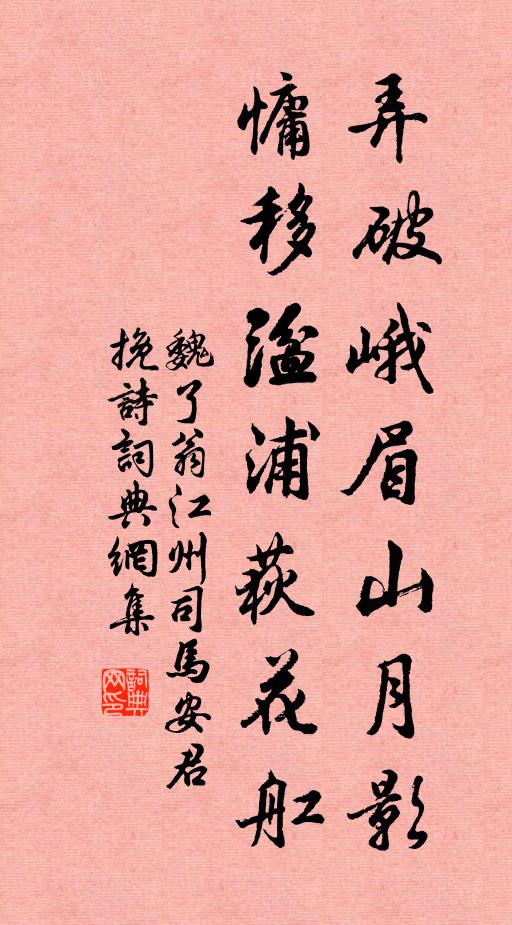 弄破峨眉山月影
慵移湓浦荻花舡
魏了翁江州司馬安君
挽詩詞典網集
詞典网印